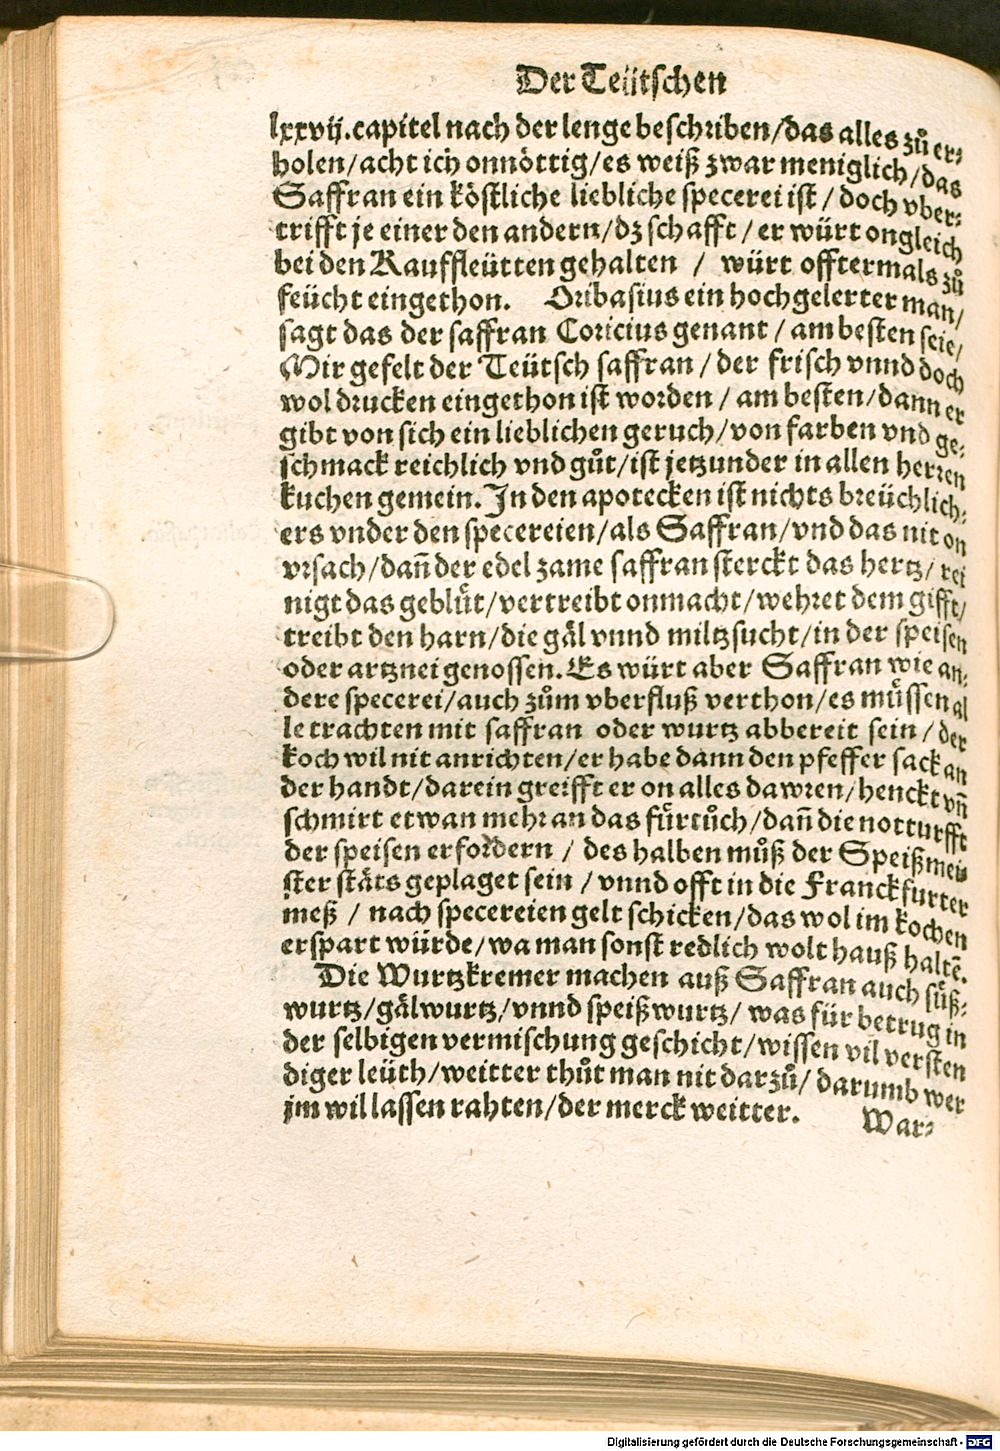 Der Teütschen
lxxvij.capitel nach der lenge beschriben/das alles zů er⸗
holen/acht ich onnöttig/es weiß zwar meniglich/das
Saffran ein köstliche liebliche specerei ist / doch vber⸗
trifft je einer den andern/dz schafft / er würt ongleich
bei den Kauffleütten gehalten / würt offtermals zů
feücht eingethon. Oribasius ein hochgelerter man/
sagt das der saffran Coricius genant / am besten seie/
Mir gefelt der Teütsch saffran / der frisch vnnd doch
wol drucken eingethon ist worden / am besten/dann er
gibt von sich ein lieblichen geruch/von farben vnd ge⸗
schmack reichlich vnd gůt/ist jetzunder in allen herren
kuchen gemein. In den apotecken ist nichts breüchlich⸗
ers vnder den specereien/als Saffran/vnd das nit on
vrsach/dañ der edel zame saffran sterckt das hertz/ rei
nigt das geblüt/vertreibt onmacht/wehret dem gifft/
treibt den harn/die gäl vnnd miltzsucht/in der speisen
oder artznei genossen. Es würt aber Saffran wie an⸗
dere specerei/auch zům vberfluß verthon/es müssen al
le trachten mit saffran oder wurtz abbereit sein / der
koch wil nit anrichten/er habe dann den pfeffer sack an
der handt/darein greifft er on alles dawren/henckt vñ
schmirt etwan mehr an das fürtůch/dañ die notturfft
der speisen erfordern / des halben můß der Speißmei⸗
ster stäts geplaget sein / vnnd offt in die Franckfurter
meß / nach specereien gelt schicken/das wol im kochen
erspart würde/wa man sonst redlich wolt hauß haltē.
Die Wurtzkremer machen auß Saffran auch süß⸗
wurtz/gälwurtz/vnnd speißwurtz/ was für betrug in
der selbigen vermischung geschicht/wissen vil versten
diger leüth/weitter thůt man nit darzů/ darumb wer
jm wil lassen rahten/der merck weitter. War⸗
Digitalisierung gefördert durch die Deutsche Forschungsgemeinschaft - DFG